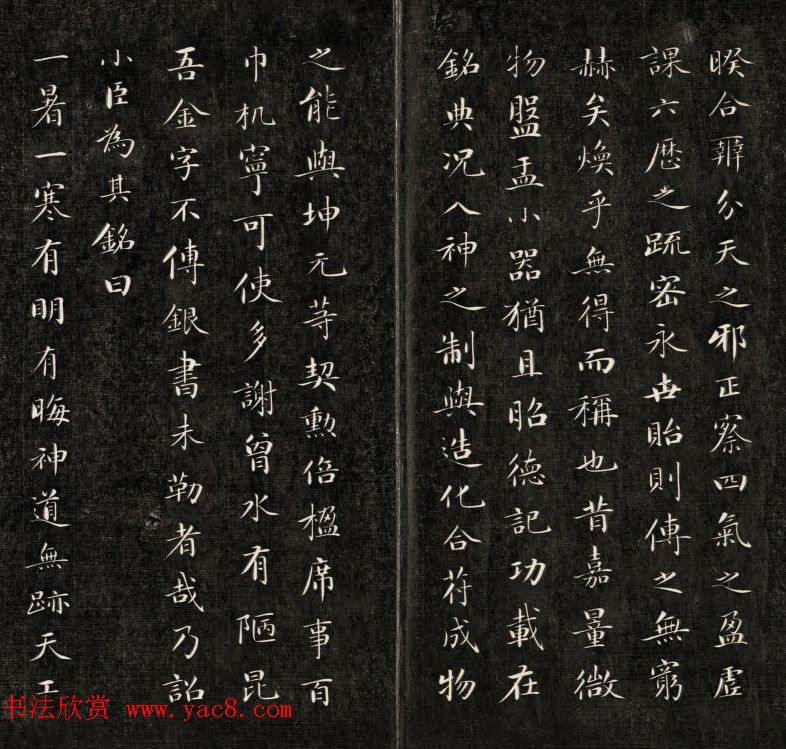 暌合辦分天之邪正察四氣之盈虛
課六歷之疏密永世貽則傳之無窮
赫矣煥乎無得而稱也昔嘉量微
物盤盂小器猶且昭德記功載在
銘典況入神之制與造化合苻成物
之能與坤元等契勲倍楹席事百
巾机寧可使多謝曾水有陋昆
吾金字不傳銀書未勒者哉乃詔
小臣為其銘曰
一暑一寒有明有晦神道無跡天工
书法欣赏 www.yac8.com